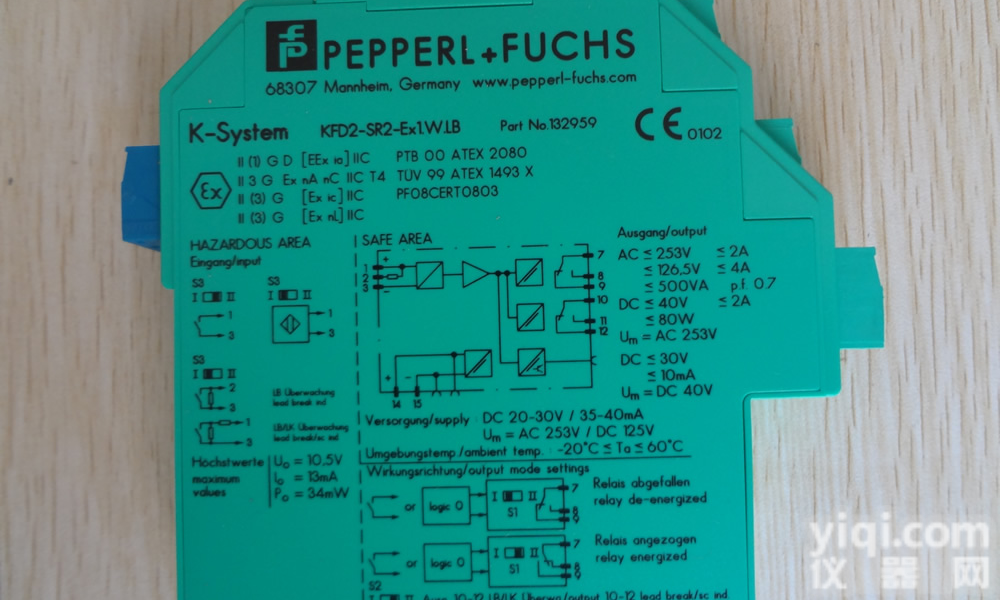 PEPPERL+FUCHS
68307 Mannheim, Germany www.pepperl-fuchs.com
K-System KFD2-SR2-Ex1.W.LB Part No.132959 CE 0102
Ex
II (1) G D [EEx ia] IIC PTB 00 ATEX 2080
II 3 G Ex nA nC IIC T4 TÜV 99 ATEX 1493 X
II (3) G [Ex ic] IIC PF08CERT0803
II (3) G [Ex nL] IIC
HAZARDOUS AREA
Eingang/input
S3
I II
1
3
S3
I II
1
3
S3
I II
2
3
LB Überwachung
lead break ind
1
3
LB/LK Überwachung
lead break/sc ind
Höchstwerte
maximum
values
U₀ = 10,5V
I₀ = 13mA
P₀ = 34mW
SAFE AREA
1 +
2
3 −
7
8
9
10
11
12
+ −
14 15
Ausgang/output
AC ≤ 253V ≤ 2A
≤ 126,5V ≤ 4A
≤ 500VA p.f. 0.7
DC ≤ 40V ≤ 2A
≤ 80W
Um = AC 253V
DC ≤ 30V
≤ 10mA
Um = DC 40V
Versorgung/supply DC 20-30V / 35-40mA
Um = AC 253V / DC 125V
Umgebungstemp./ambient temp. : -20°C ≤ Ta ≤ 60°C
Wirkungsrichtung/output mode settings
or logic 0 I II S1 7 8 9
Relais abgefallen
relay de-energized
or logic 0 I II S1 7 8 9
Relais angezogen
relay energized
S2
I II Ausg. 10-12 LB/LK Überw./output 10-12 lead break/sc ind.
yiqi.com
仪器网